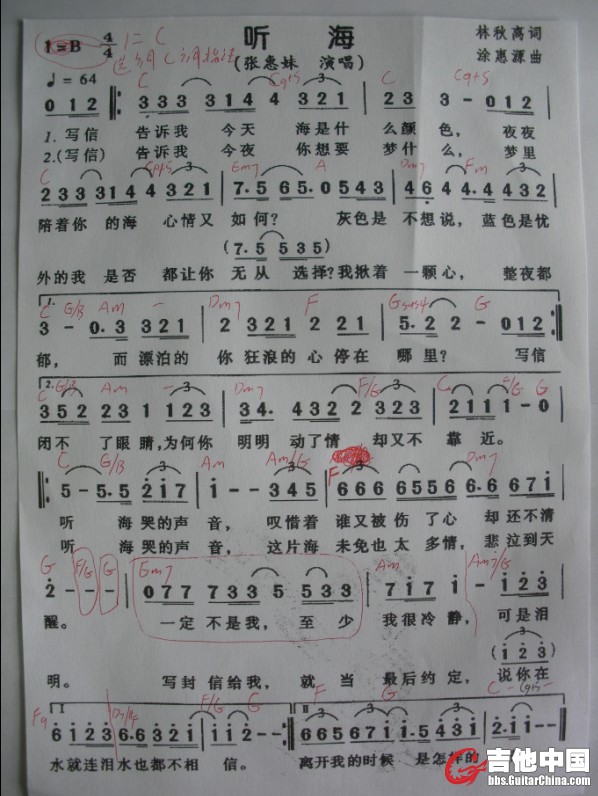 1=B 4/4 1=C
听 海
林秋离词
(张惠妹 演唱)
涂惠源曲
♩=64
C C C9+5
0 1 2 3 3 3 3 1 4 4 3 2 1 2 3 3 - 0 1 2
1. 写信 告诉我 今天 海是什 么颜 色, 夜夜
2.(写信) 告诉我 今夜 你想要 梦什 么, 梦里
C Em7 A Dm7 Fm
2 3 3 3 1 4 4 3 2 1 7. 5 6 5. 0 5 4 3 4 6 4 4. 4 4 3 2
陪着你 的海 心情又 如何? 灰色是 不想说, 蓝色是忧
(7. 5 5 3 5)
外的我 是否 都让你 无从 选择?我揪着 一颗心, 整夜都
1.
C G/B Am - Dm7 F Gsus4 G
3 - 0. 3 3 2 1 2 3 2 1 2 2 2 1 5. 2 2 - 0 1 2
郁, 而漂泊的 你狂浪的心停在 哪里? 写信
2.
C G/B Am - Dm7 F/G C F/G G
3 5 2 2 3 1 1 2 3 3 4. 4 3 2 2 3 2 3 2 1 1 1 - 0
闭不 了眼睛,为何你 明明 动了情 却又不 靠近。
C G/B Am Am/G F Dm7
5 - 5. 5 2 1 7 1 - - 3 4 5 6 6 6 6 5 5 6 6. 6 6 7 1
听 海哭的声 音, 叹惜着 谁又被伤 了心 却还不清
听 海哭的声 音, 这片海 未免也太 多情, 悲泣到天
G F/G G Em7 Am Am7/G
2 - - - 0 7 7 7 3 3 5 5 3 3 7 1 7 1 1 - 1 2 3
醒。 一定 不是我, 至少 我很冷静, 可是泪
(1 2 3)
明。 写封 信给我, 就当 最后约定, 说你在
I II
F/G G F G C
6 1 2 3 6. 6 3 2 1 1 - - 6 6 5 6 7 1 4 3 2 1 2. 1 - -
水就连泪水也都不相 信。 离开我的时候 是怎样的
吉他中国
bbs.GuitarChina.com